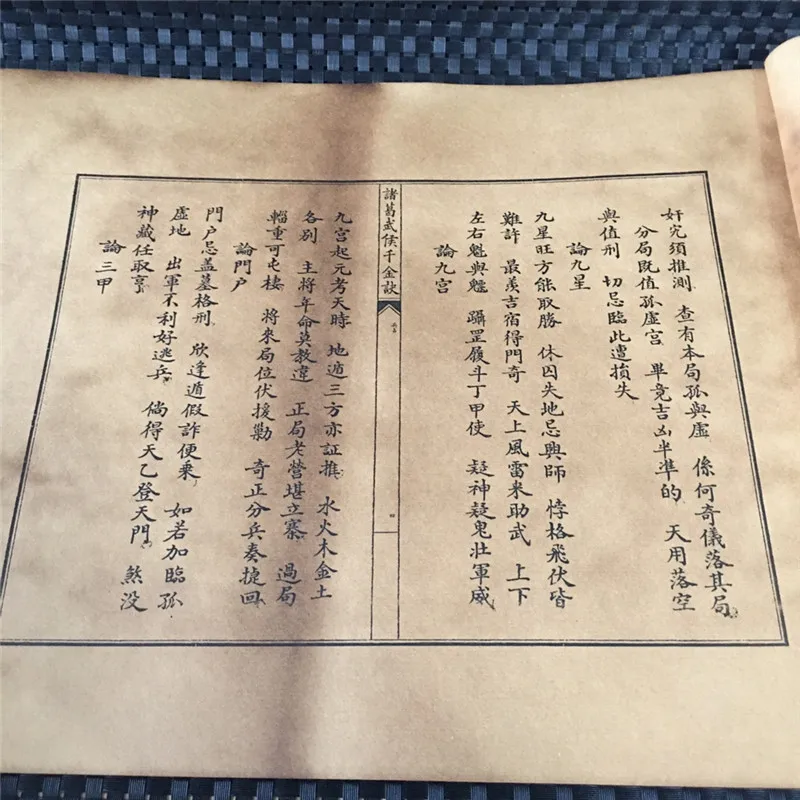 奸宄須推測 查有本局孤與虛 係何奇儀落其局
分局既值孤虛宮 畢竟吉凶半準的 天用落空
與值刑 切忌臨此遭損失
論九星
九星旺方能取勝 休囚失地忌興師 悖格飛伏皆
難許 最羨吉宿得門奇 天上風雷來助武 上下
左右魁與魓 躡罡履斗丁甲使 疑神疑鬼壯軍威
論九宮
諸葛武侯千金訣
九宮起元考天時 地遁三方亦証推 水火木金土
各別 主將年命莫教違 正局老營堪立寨 過局
輜重可屯棲 將來局位伏援勦 奇正分兵奏捷回
論門户
門户忌盖墓格刑 欣逢遁假詐便乘 如若加臨孤
虛地 出軍不利好逃兵 倘得天乙登天門 煞没
神藏任取亨
論三甲